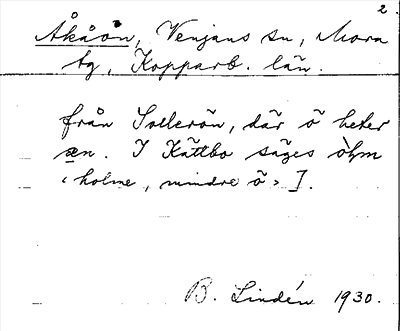 2.
Åkåön, Venjans sn, Mora
tg, Kopparb. län.
från Sollerön, där ö heter
æn. I Kättbo säges òḷm
‹ holme, mindre ö › ].
B. Lindén 1930.